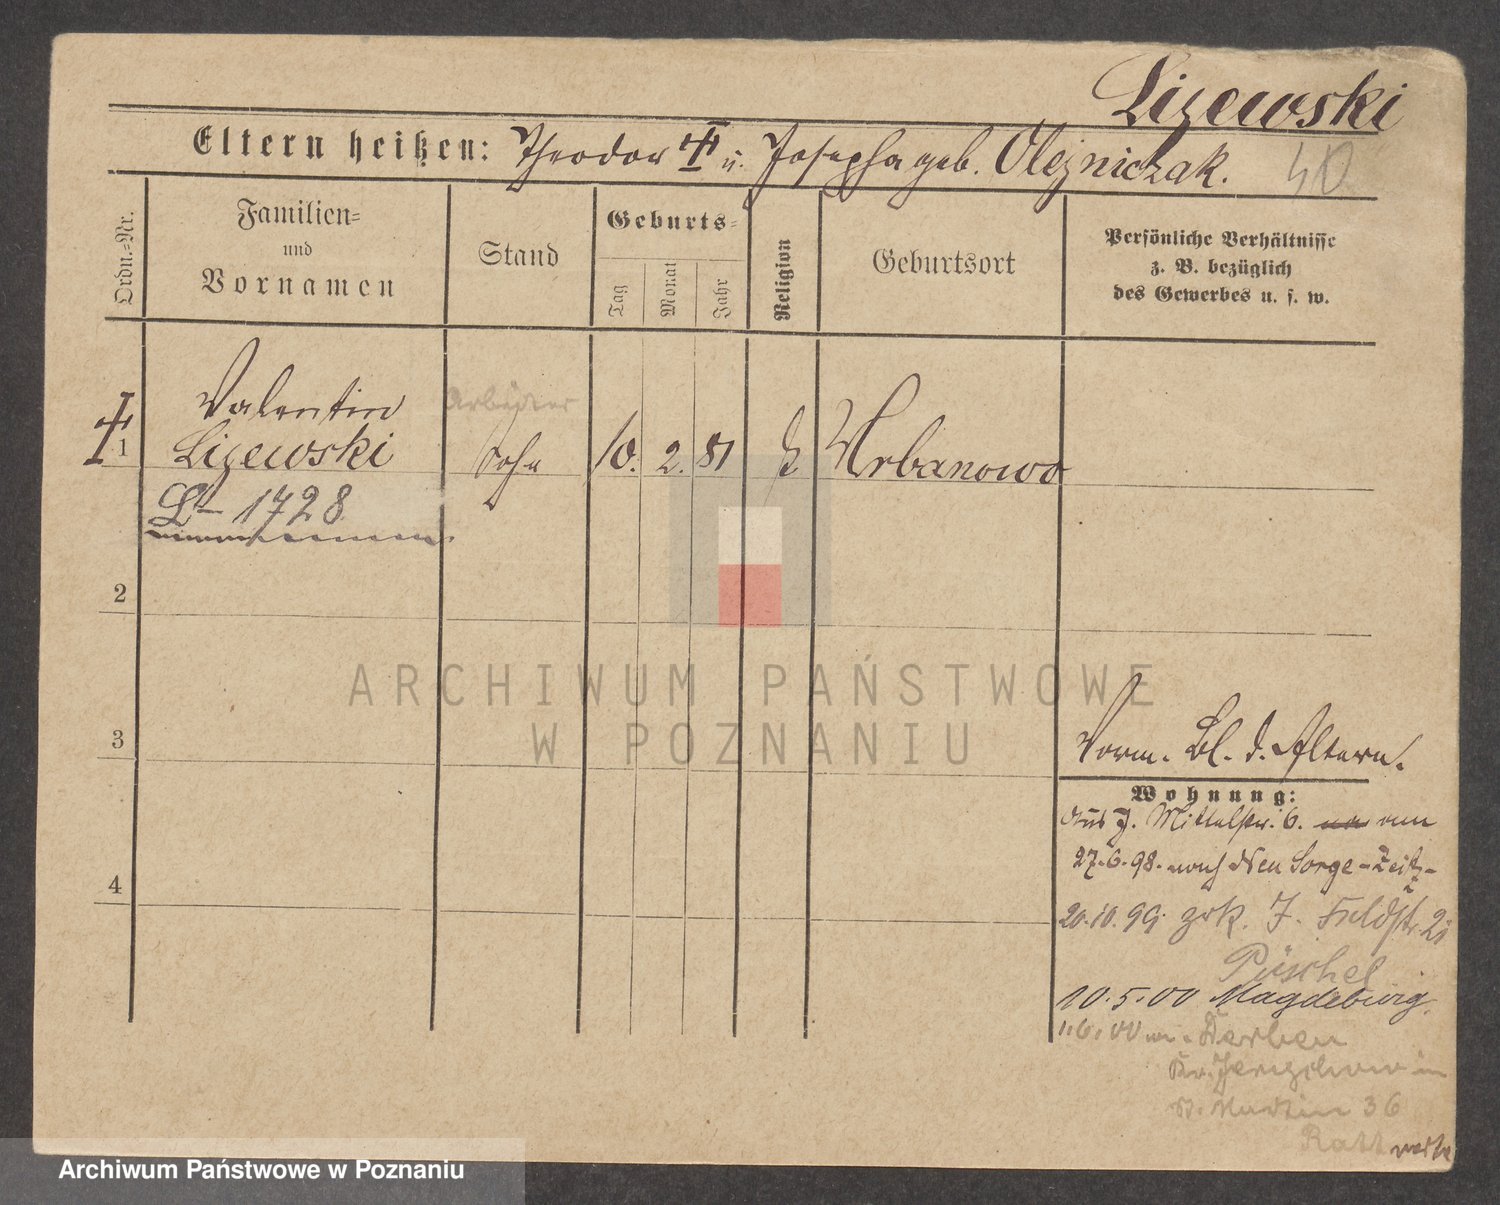 Lizewski
Eltern heißen: Theodor u. Josepha geb. Olejniczak.
40
Ordn.=Nr.
Familien=
und
Vornamen
Stand
Geburts=
Tag
Monat
Jahr
Religion
Geburtsort
Persönliche Verhältnisse
z. B. bezüglich
des Gewerbes u. s. w.
Valentin
Arbeiter
1 Lizewski Sohn 10. 2. 81 k Urbanowo
1728
2
3
Vorm. Bl. d. Altern.
Wohnung:
aus J. Mittelstr. 6. am
27.6.98. nach Neu Sorge - Zeitz -
4
20.10.99. zrk. J. Feldstr. 21
Püschel
10.5.00 Magdeburg.
1.6.00 Derben
Kr. Jerichow in
St. Martin 36
Ratt
ARCHIWUM PAŃSTWOWE
W POZNANIU
Archiwum Państwowe w Poznaniu